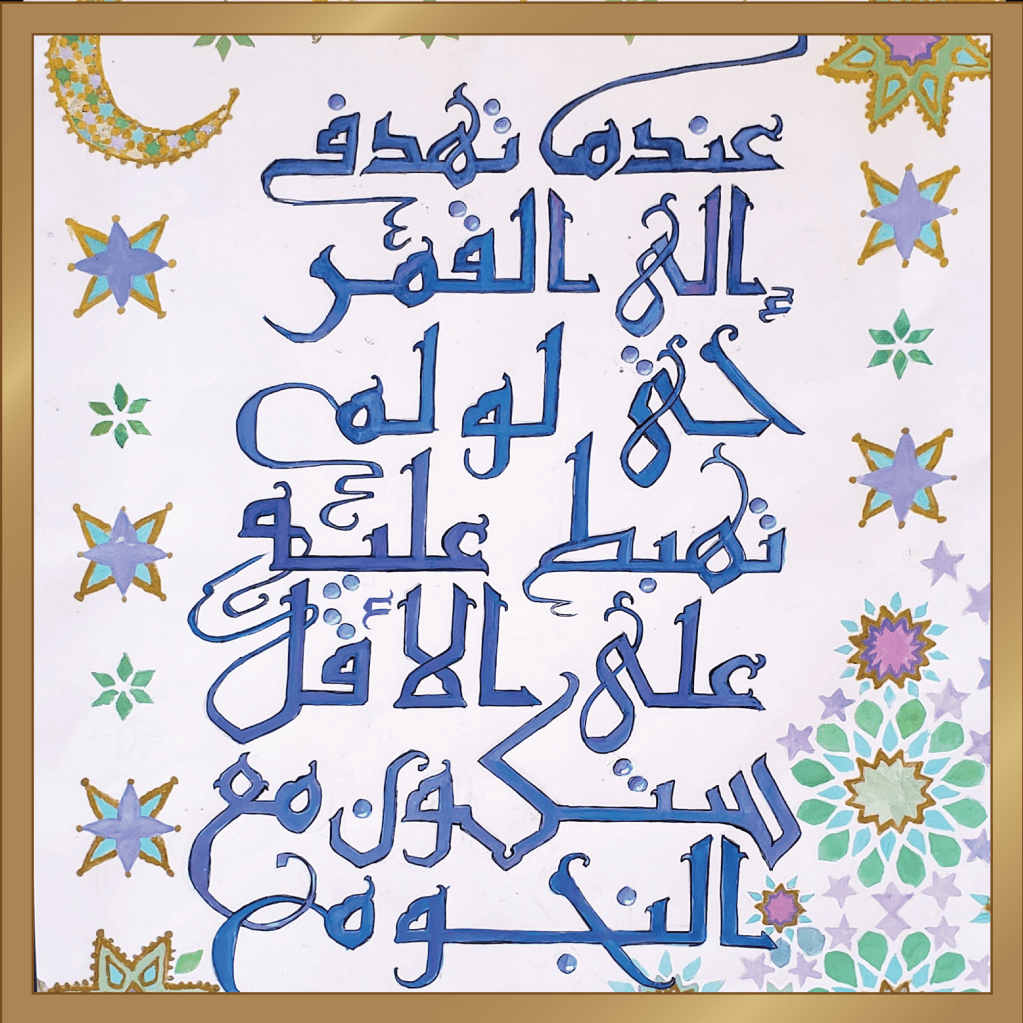 عندما تهدف
إلى القمر
حتى لو لم
تهبط عليه
على الأقل
ستكون مع
النجوم